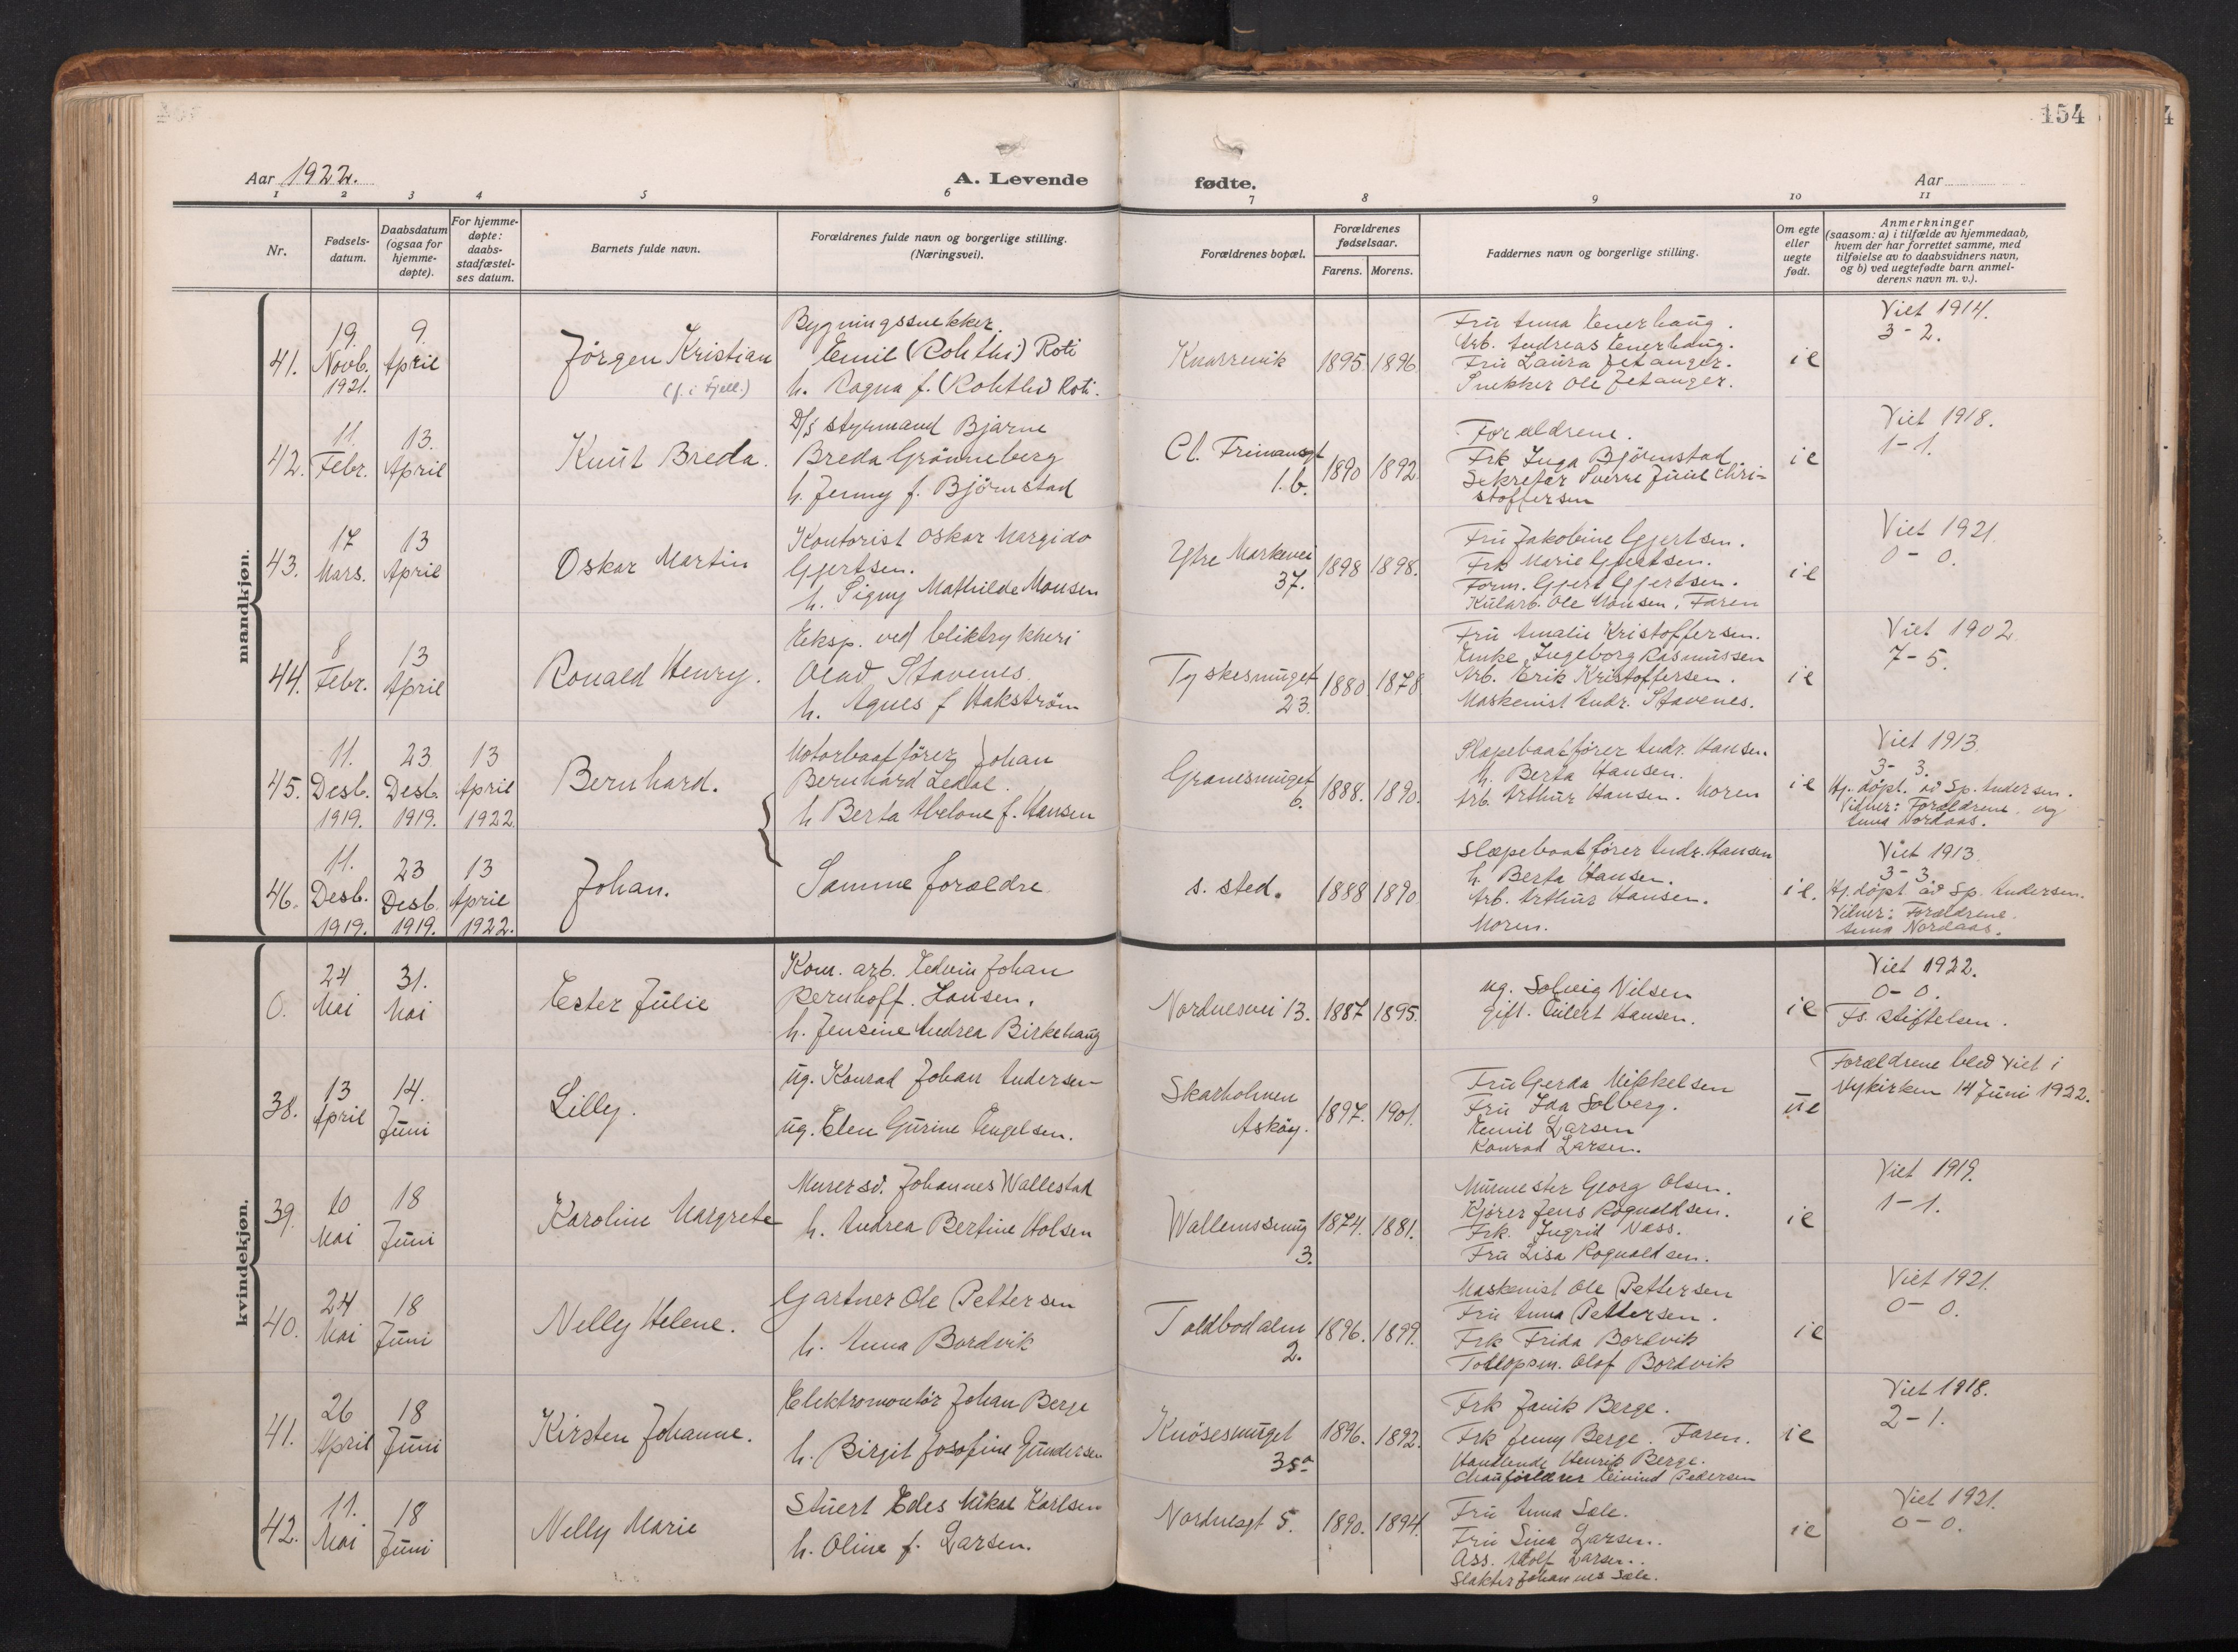 154
Aar 1922.
A. Levende fødte.
Aar
1 2 3 4 5 6 7 8 9 10 11
Nr.
Fødsels-datum.
Daabsdatum (ogsaa for hjemme-døpte).
For hjemme-døpte: daabs-stadfæstel-ses datum.
Barnets fulde navn.
Forældrenes fulde navn og borgerlige stilling. (Næringsvei).
Forældrenes bopæl.
Forældrenes fødselsaar.
Farens. Morens.
Faddernes navn og borgerlige stilling.
Om egte eller uegte født.
Anmerkninger (saasom: a) i tilfælde av hjemmedaab, hvem der har forrettet samme, med tilføielse av to daabsvidners navn, og b) ved uegtefødte barn anmel-derens navn m. v.).
mandkjøn.
41.
19. Novb. 1921.
9. April
Jörgen Kristian
(f. i Fjell.)
Bygningssnekker
Emil (Rohthi) Roti
h. Ragna f. (Rohthi) Roti.
Knarrevik
1895. 1896.
Fru Anna Enerhaug.
Arb. Andreas Enerhaug.
Fru Laura Jetanger.
Snekker Ole Jetanger.
ie
Viet 1914.
3 - 2.
42.
11. Febr.
13. April
Knut Breda.
D/s styrmand Bjarne
Breda Grönneberg
h. Jenny f. Björnstad
Cl. Frimansgt
1.b.
1890 1892.
Forældrene.
Frk Inga Björnstad
Sekretær Sverre Juul Chri-
stoffersen
ie
Viet 1918.
1 - 1.
43.
17 Mars.
13 April
Oskar Martin
Kontorist Oskar Margido
Gjertsen.
h. Signy Mathilde Monsen
Ytre Markevei
37.
1898 1898.
Fru Jakobine Gjertsen.
Frk Marie Gjertsen.
Form. Gjert Gjertsen.
Kularb. Ole Monsen, Faren
ie
Viet 1921.
0 - 0.
44.
8 Febr.
13 April
Ronald Henry.
Eksp. ved bliktrykkeri
Olad Stavenes.
h. Agnes f Hakström
Tyskesmuget
23.
1880 1878
Fru Amalie Kristoffersen.
Enke Ingeborg Rasmussen
Arb. Erik Kristoffersen.
Maskinist Andr. Stavenes.
ie
Viet 1902.
7 - 5.
45.
11. Desb. 1919.
23. Desb. 1919.
13 April 1922
Bernhard.
Motorbaatfører Johan
Bernhard Ledal.
h Berta Abelone f. Hansen
Granesmuget
6.
1888. 1890.
Slæpebaatfører Andr. Hansen
h. Berta Hansen.
Arb. Arthur Hansen. Moren
ie
Viet 1913.
3 - 3.
Hj. døpt. av Sp. Andersen.
Vidner: Forældrene og
Anna Nordaas.
46.
11. Desb. 1919.
23 Desb. 1919.
13 April 1922.
Johan.
Samme forældre
s. sted.
1888 1890
Slæpebaatfører Andr. Hansen
h. Berta Hansen.
Arb. Arthur Hansen.
Moren.
ie.
Viet 1913.
3 - 3.
Hj. døpt av Sp. Andersen.
Vidner: Forældrene.
Anna Nordaas.
kvindekjøn.
0.
24 Mai
31. Mai
Ester Julie
Kom. arb. Edvin Johan
Bernhoff. Hansen.
h. Jensine Andrea Birkehaug
Nordnesvei 13.
1887 1895.
ug. Solveig Nilsen
gift. Eilert Hansen.
ie
Viet 1922.
0 - 0.
Fs. stiftelsen.
38.
13 April
14. Juni
Lilly.
ug. Konrad Johan Andersen
ug. Elen Gurine Engelsen.
Skarholmen
Askøy.
1897. 1901.
Fru Gerda Mikkelsen
Fru Ida Solberg.
Emil Larsen
Konrad Larsen.
ue
Forældrene blev viet i
Nykirken 14 Juni 1922.
39.
10 Mai
18 Juni
Karoline Margrete
Murersv. Johannes Wallestad
h. Andrea Bertine Holsen
Wallemssmug
3.
1874. 1881.
Murmester Georg Olsen.
Kjører Jens Rognaldsen.
Frk. Ingrid Næss.
Fru Lisa Rognaldsen.
ie
Viet 1919.
1 - 1.
40.
24 Mai
18 Juni
Nelly Helene.
Gartner Ole Pettersen
h. Anna Bordvik
Toldbodalm
2.
1896. 1899.
Maskinist Ole Pettersen
Fru Anna Pettersen.
Frk Frida Bordvik
Toldopsm. Olof Bordvik
ie
Viet 1921.
0 - 0.
41.
26 April
18 Juni
Kirsten Johanne.
Elektromontør Johan Berge
h. Birgit Josefine Gundersen
Knøsesmuget
35a
1896. 1892.
Frk Janik Berge.
Frk Jenny Berge. Faren.
Handlende Henrik Berge.
Eivind Pedersen
ie
Viet 1918.
2 - 1.
42.
11. Mai
18 Juni
Nelly Marie
Stuert Edes Mikal Karlsen
h. Oline f. Larsen.
Nordnesgt 5.
1890. 1894.
Fru Anna Sæle.
Fru Sina Larsen.
Ass. Adolf Larsen.
Slakter Johannes Sæle.
ie
Viet 1921.
0 - 0.